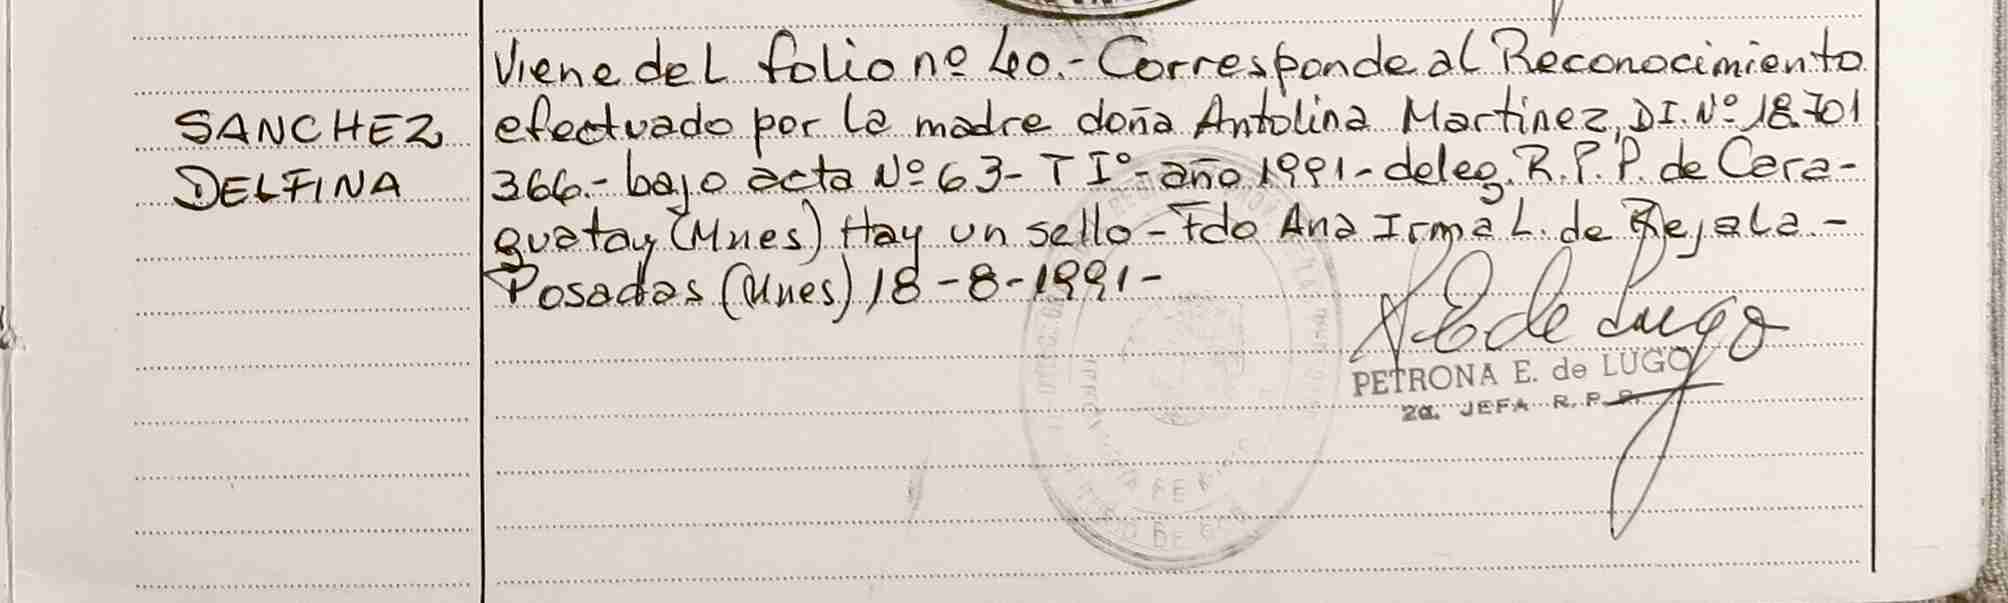 Viene del folio nº 40.- Corresponde al Reconocimiento
SANCHEZ efectuado por la madre doña Antolina Martinez, DI. Nº 18.701
DELFINA 366.- bajo acta Nº 63- T Iº- año 1991- deleg. R.P.P. de Cara-
guatay (Mnes) Hay un sello - Fdo Ana Irma L. de Rejala.-
Posadas (Mnes) 18-8-1991-
PETRONA E. de LUGO
2a. JEFA R.P.P.